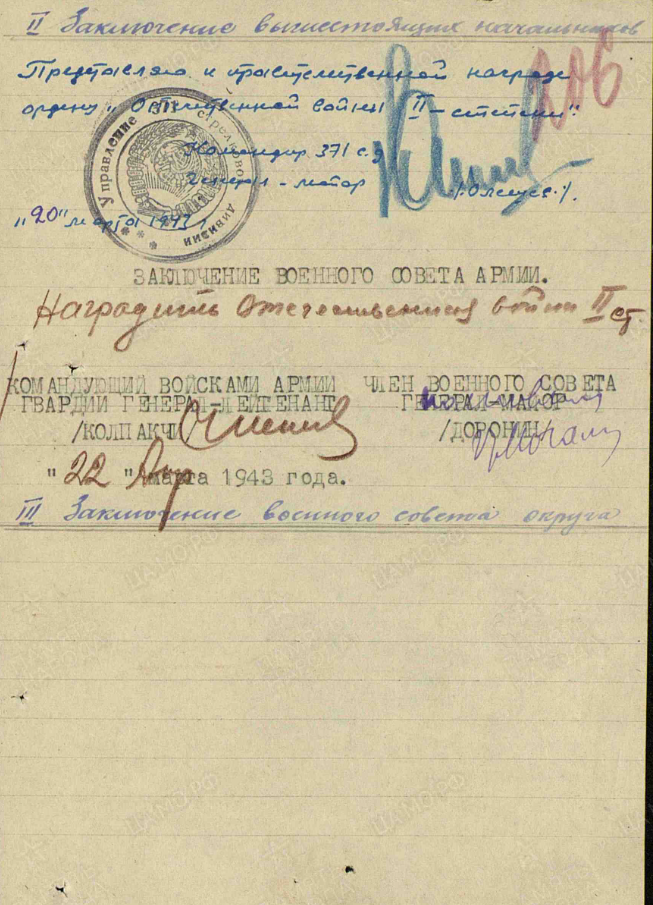 II Заключение вышестоящих начальников
206
Представляю к правительственной награде
ордену „Отечественной войны II-степени".
Управление 371 стрелковой дивизии
Командир 371 с.д
Генерал-майор /Олешев/.
„20" марта 1943 г.
ЗАКЛЮЧЕНИЕ ВОЕННОГО СОВЕТА АРМИИ.
Наградить Отечественная войны II ст
КОМАНДУЮЩИЙ ВОЙСКАМИ АРМИИ ЧЛЕН ВОЕННОГО СОВЕТА
ГВАРДИИ ГЕНЕРАЛ-ЛЕЙТЕНАНТ ГЕНЕРАЛ-МАЙОР
/КОЛПАКЧИ/ /ДОРОНИН/
"22" Апр марта 1943 года.
III Заключение военного совета округа
ЦАМО.РФ